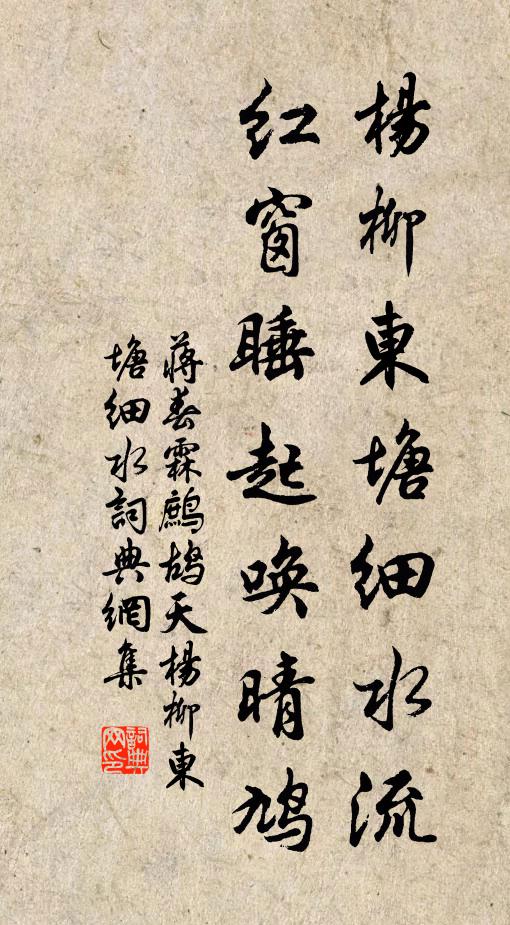 楊柳東塘細水流
紅窗睡起喚晴鳩
蔣春霖鷓鴣天楊柳東
塘細水詞典網集
詞典
网印